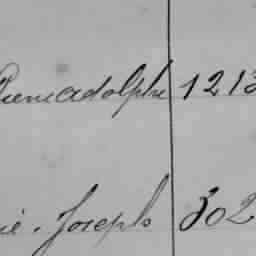 Pierre adolphe 1213
ie. Joseph 302